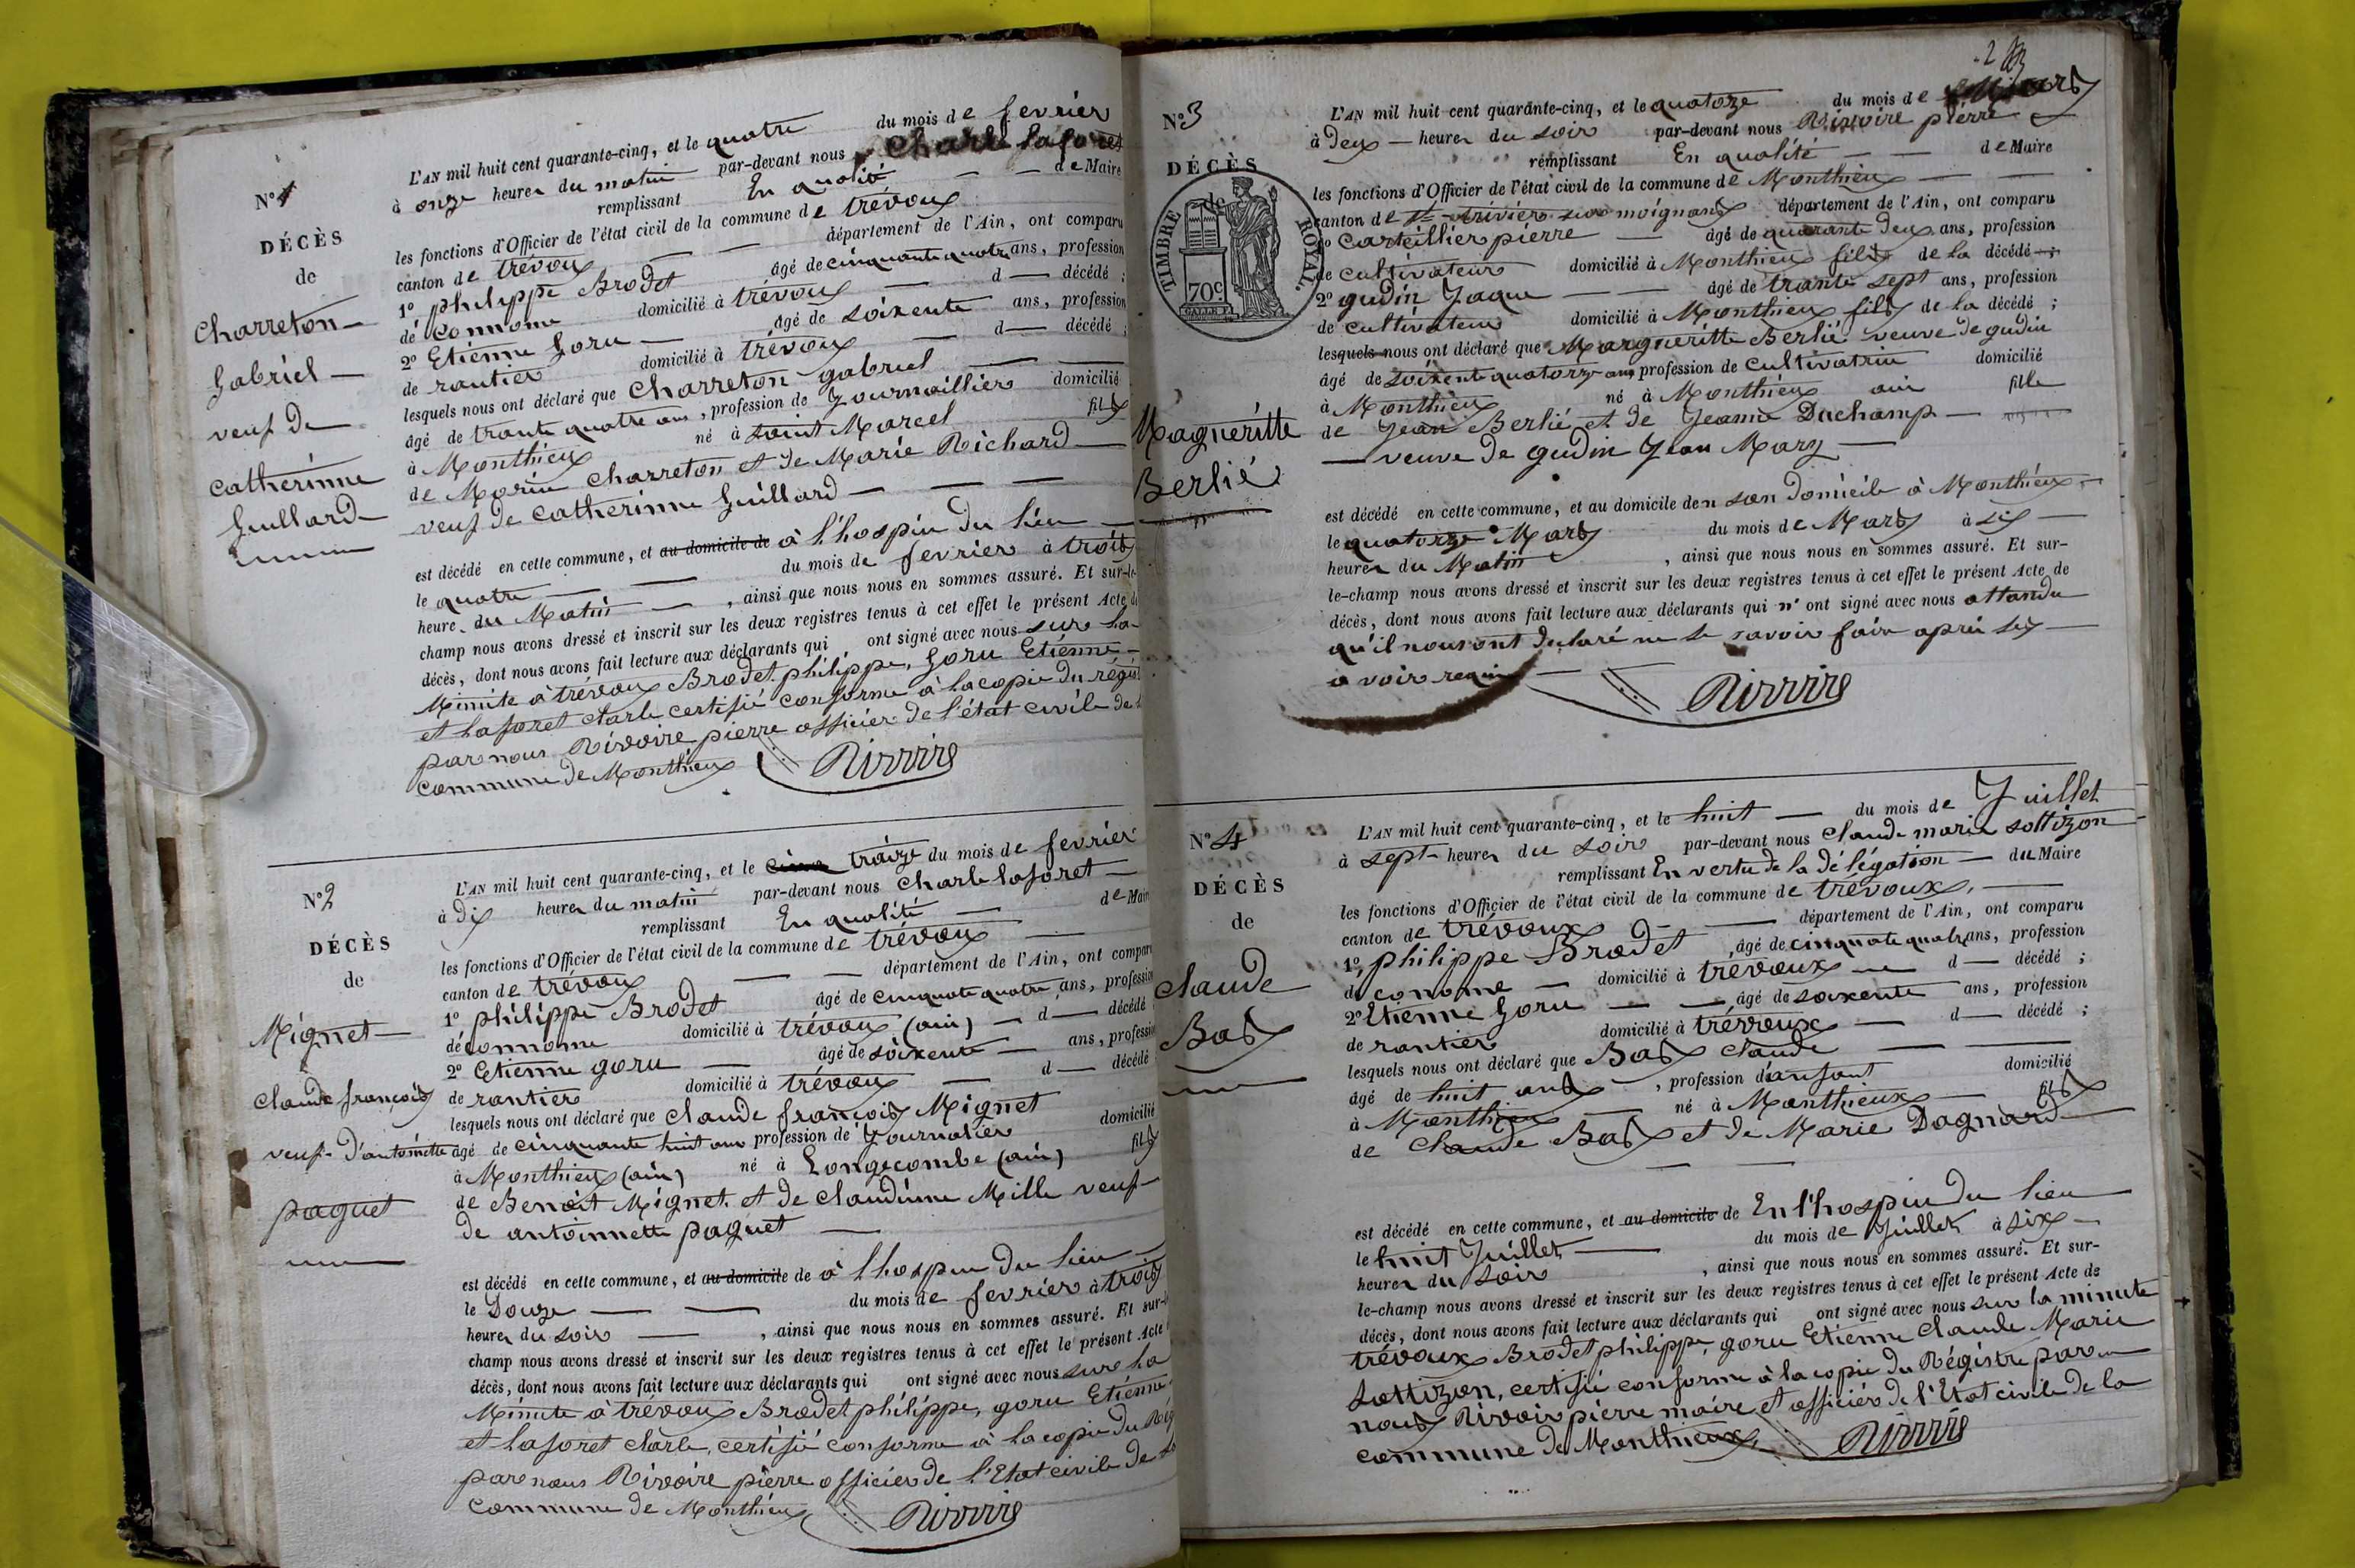 N° 1
DÉCÈS
de
Charreton
Gabriel
veuf de
catherinne
Guillard
L'AN mil huit cent quarante-cinq, et le quatre du mois de fevrier
à onze heures du matin par-devant nous Charle laforet
remplissant En qualité de Maire
les fonctions d'Officier de l'état civil de la commune de trévoux
canton de trévoux département de l'Ain, ont comparu
1° philippe Brodet âgé de cinquante quatre ans, profession
d'économe domicilié à trévoux d décédé ;
2° Etienne Goru âgé de soixente ans, profession
de rantier domicilié à trévoux d décédé ;
lesquels nous ont déclaré que Charreton gabriel
âgé de trante quatre ans, profession de Journaillier domicilié
à Monthieux né à saint Marcel fils
de Marin Charreton et de Marie Richard
veuf de catherinne Guillard
est décédé en cette commune, et au domicile de à l'hospice du lieu
le quatre du mois de fevrier à trois
heures du Matin, ainsi que nous nous en sommes assuré. Et sur-le-
champ nous avons dressé et inscrit sur les deux registres tenus à cet effet le présent Acte de
décès, dont nous avons fait lecture aux déclarants qui ont signé avec nous sur la
Minute à trévoux Brodet philippe, Goru Etienne
et laforet charle certifié conforme à la copie du
par nous Rivoire pierre officier de l'état civile de
commune de Monthieux Rivoire
N° 2
DÉCÈS
de
Mignet
claude françois
veuf d'antoinette
paquet
L'AN mil huit cent quarante-cinq, et le traize du mois de fevrier
à dix heures du matin par-devant nous charle laforet
remplissant En qualité de Maire
les fonctions d'Officier de l'état civil de la commune de trévoux
canton de trévoux département de l'Ain, ont comparu
1° philippe Brodet âgé de cinquate quatre ans, profession
d'économe domicilié à trévoux (ain) d décédé
2° Etienne goru âgé de soixente ans, profession
de rantier domicilié à trévoux d décédé
lesquels nous ont déclaré que claude françois Mignet
âgé de cinquante huit ans profession de Journalier domicilié
à Monthieux (ain) né à Longecombe (ain) fils
de Benoit Mignet et de claudinne Mille veuf
de antoinnette paquet
est décédé en cette commune, et au domicile de à l'hospice du lieu
le Douze du mois de fevrier à trois
heures du soir, ainsi que nous nous en sommes assuré. Et sur-le-
champ nous avons dressé et inscrit sur les deux registres tenus à cet effet le présent Acte
décès, dont nous avons fait lecture aux déclarants qui ont signé avec nous sure la
Minute à trévoux Brodet philippe, goru Etienne
et laforet charle, certifié conforme à la copie du
par nous Rivoire pierre officier de l'Etat civile de la
commune de Monthieux Rivoire
2
N° 3
DÉCÈS
de
TIMBRE ROYAL.
70c
Magueritte
Berlié
L'AN mil huit cent quarante-cinq, et le quatoze du mois de Mars
à deux heures du soir par-devant nous Rivoire pierre
remplissant En qualité de Maire
les fonctions d'Officier de l'état civil de la commune de Monthieux
canton de St trivier sur moignans département de l'Ain, ont comparu
1° carteillier pierre âgé de quarante deux ans, profession
de cultivateur domicilié à Monthieux fils de la décédé ;
2° gudin Jaque âgé de trante sept ans, profession
de cultivateur domicilié à Monthieux fils de la décédé ;
lesquels nous ont déclaré que Margueritte Berlié veuve de gudin
âgé de soixente quatorze ans profession de cultivatrice domicilié
à Monthieux né à Monthieux ain fille
de Jean Berlié et de Jeanne Duchamp
veuve de gudin Jean Mary
est décédé en cette commune, et au domicile den son domicile à Monthieux
le quatorze Mars du mois de Mars à six
heures du Matin, ainsi que nous nous en sommes assuré. Et sur-
le-champ nous avons dressé et inscrit sur les deux registres tenus à cet effet le présent Acte de
décès, dont nous avons fait lecture aux déclarants qui n'ont signé avec nous attandu
qu'il nous ont déclaré ne le savoir faire après les
avoir requis Rivoire
N° 4
DÉCÈS
de
claude
Bas
L'AN mil huit cent quarante-cinq, et le huit du mois de Juillet
à sept heures du soir par-devant nous claude marie sottizon
remplissant En vertu de la délégation du Maire
les fonctions d'Officier de l'état civil de la commune de trévoux,
canton de trévoux département de l'Ain, ont comparu
1° philippe Brodet, âgé de cinquate quatre ans, profession
d'économe domicilié à trévoux d décédé ;
2° Etienne Goru âgé de soixente ans, profession
de rantier domicilié à trévoux d décédé ;
lesquels nous ont déclaré que Bas claude
âgé de huit ans, profession d'anfant domicilié
à Monthieux né à Monthieux fils
de Claude Bas et de Marie Dagnard
est décédé en cette commune, et au domicile de En l'hospice du lieu
le huit Juillet du mois de Juillet à six
heures du soir, ainsi que nous nous en sommes assuré. Et sur-
le-champ nous avons dressé et inscrit sur les deux registres tenus à cet effet le présent Acte de
décès, dont nous avons fait lecture aux déclarants qui ont signé avec nous sur la minute
trévoux Brodet philippe, goru Etienne Claude Marie
Sottizon, certifié conforme à la copie du Régistre par
nous Rivoire pierre maire et officier de l'Etat civile de la
commune de Monthieux, Rivoire